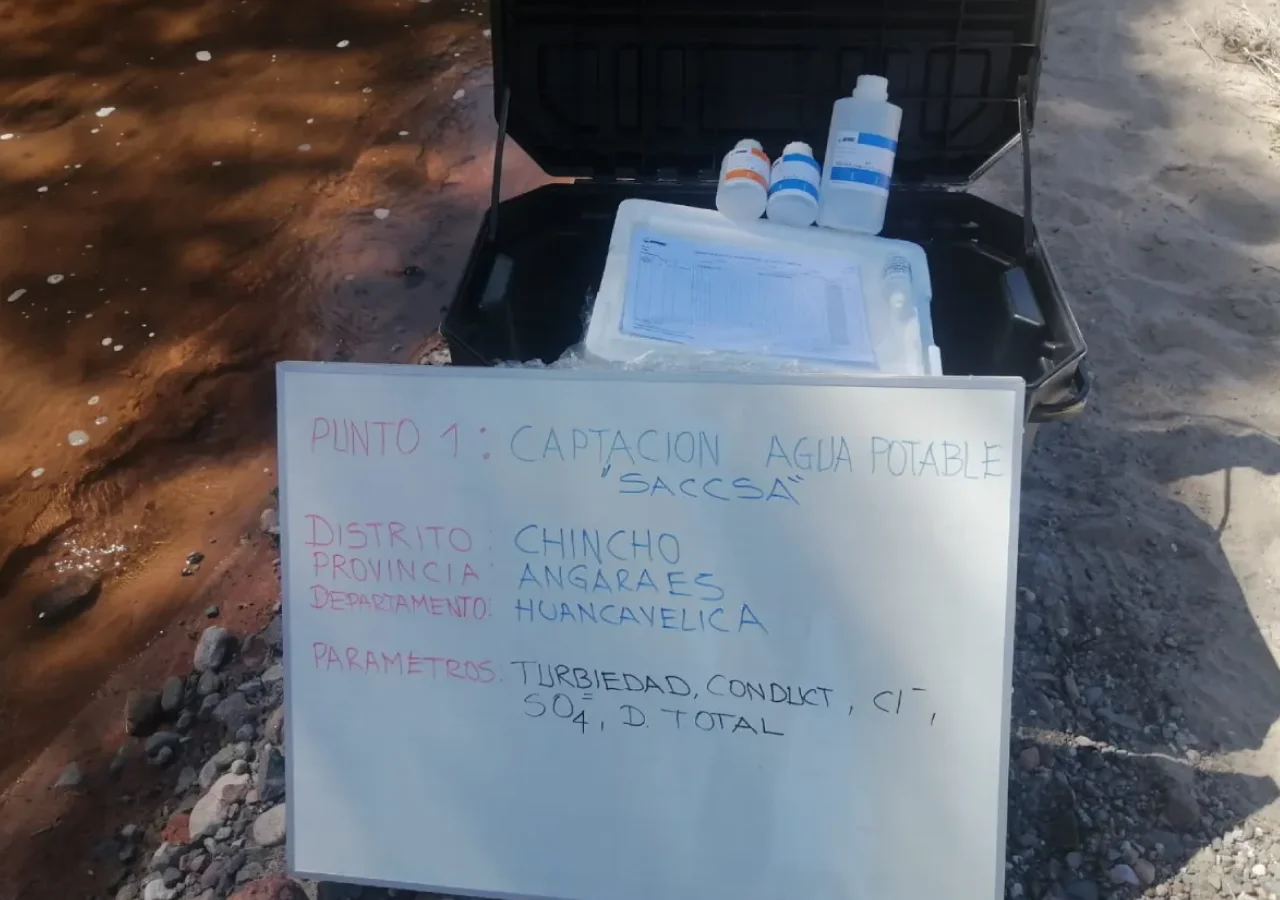 PUNTO 1: CAPTACION AGUA POTABLE
"SACCSA"
DISTRITO: CHINCHO
PROVINCIA: ANGARAES
DEPARTAMENTO: HUANCAVELICA
PARAMETROS: TURBIEDAD, CONDUCT, Cl⁻,
SO₄⁼, D. TOTAL